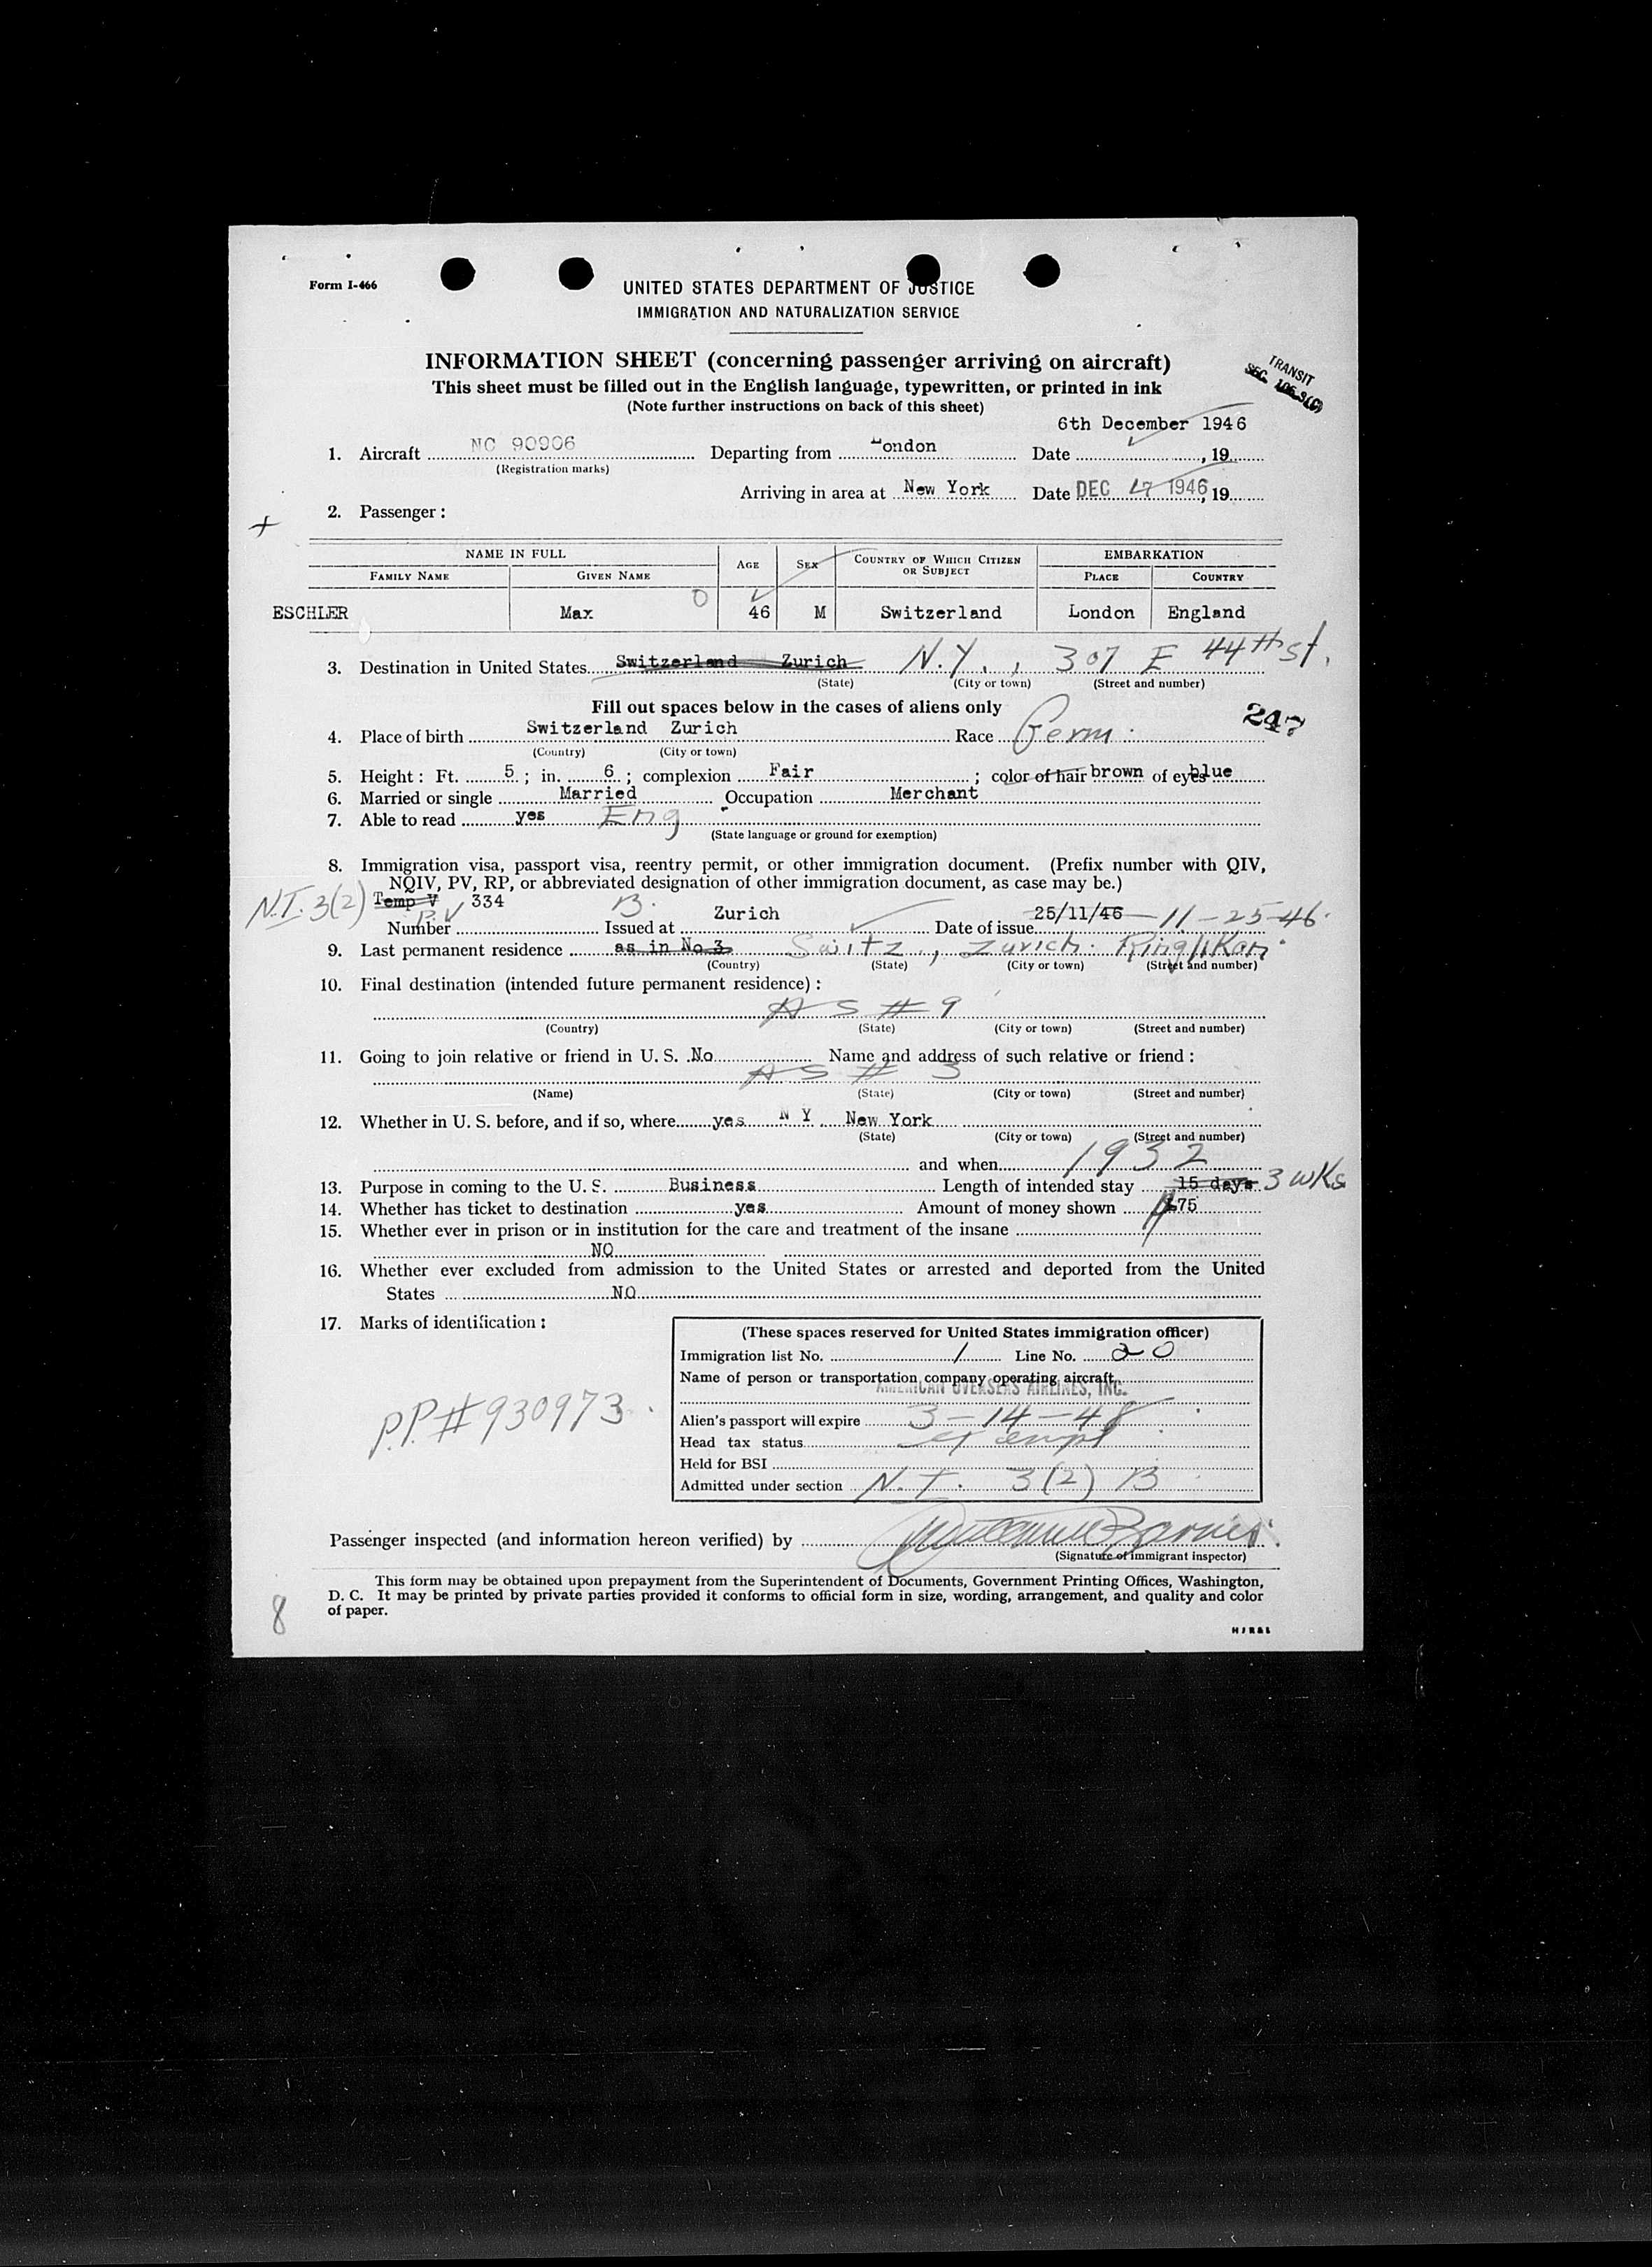 Form I-466
UNITED STATES DEPARTMENT OF JUSTICE
IMMIGRATION AND NATURALIZATION SERVICE
INFORMATION SHEET (concerning passenger arriving on aircraft)
This sheet must be filled out in the English language, typewritten, or printed in ink
(Note further instructions on back of this sheet)
TRANSIT
SEC. 106.3(C)
6th December 1946
1. Aircraft NC 90906 Departing from London Date , 19
(Registration marks)
Arriving in area at New York Date DEC 1946, 19
2. Passenger:
NAME IN FULL AGE SEX COUNTRY OF WHICH CITIZEN OR SUBJECT EMBARKATION
FAMILY NAME GIVEN NAME PLACE COUNTRY
ESCHLER Max 0 46 M Switzerland London England
3. Destination in United States Switzerland Zurich N.Y., 307 E 44th st.
(State) (City or town) (Street and number)
Fill out spaces below in the cases of aliens only
247
4. Place of birth Switzerland Zurich Race Germ.
(Country) (City or town)
5. Height: Ft. 5; in. 6; complexion Fair; color of hair brown of eyes blue
6. Married or single Married Occupation Merchant
7. Able to read yes Eng
(State language or ground for exemption)
8. Immigration visa, passport visa, reentry permit, or other immigration document. (Prefix number with QIV,
NQIV, PV, RP, or abbreviated designation of other immigration document, as case may be.)
N.I. 3(2) B.
Temp V 334
P.V
Number Issued at Zurich Date of issue 25/11/46 11-25-46.
9. Last permanent residence as in No 3 Switz., Zurich. Ringlikon.
(Country) (State) (City or town) (Street and number)
10. Final destination (intended future permanent residence):
AS #9
(Country) (State) (City or town) (Street and number)
11. Going to join relative or friend in U. S. No Name and address of such relative or friend:
AS # 3
(Name) (State) (City or town) (Street and number)
12. Whether in U. S. before, and if so, where yes N Y New York
(State) (City or town) (Street and number)
and when 1932
13. Purpose in coming to the U. S. Business Length of intended stay 15 days 3 wks
14. Whether has ticket to destination yes Amount of money shown 75
15. Whether ever in prison or in institution for the care and treatment of the insane
NO
16. Whether ever excluded from admission to the United States or arrested and deported from the United
States NO
17. Marks of identification:
P.P.#930973.
(These spaces reserved for United States immigration officer)
Immigration list No. 1 Line No. 20
Name of person or transportation company operating aircraft
AMERICAN OVERSEAS AIRLINES, INC.
Alien's passport will expire 3-14-48
Head tax status exempt
Held for BSI
Admitted under section N.I. 3(2) B
Passenger inspected (and information hereon verified) by
(Signature of immigrant inspector)
This form may be obtained upon prepayment from the Superintendent of Documents, Government Printing Offices, Washington,
D. C. It may be printed by private parties provided it conforms to official form in size, wording, arrangement, and quality and color
of paper.
8
HJR&L